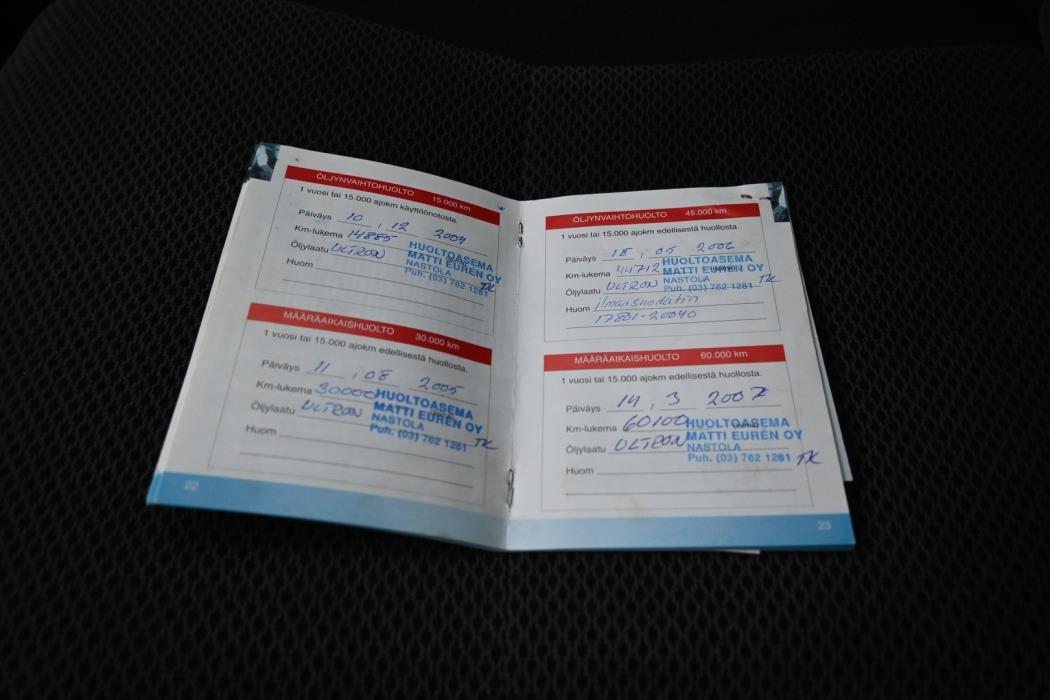 ÖLJYNVAIHTOHUOLTO 15.000 km
1 vuosi tai 15.000 ajokm käyttöönotosta.
Päiväys 10 , 12 2004
Km-lukema 14885
Öljylaatu ULTRON
Huom
HUOLTOASEMA
MATTI EUREN OY
NASTOLA
Puh. (03) 762 1281 TK
MÄÄRÄAIKAISHUOLTO 30.000 km
1 vuosi tai 15.000 ajokm edellisestä huollosta.
Päiväys 11 , 08 2005
Km-lukema 30000
Öljylaatu ULTRON
Huom
HUOLTOASEMA
MATTI EUREN OY
NASTOLA
Puh. (03) 762 1281 TK
22
ÖLJYNVAIHTOHUOLTO 45.000 km
1 vuosi tai 15.000 ajokm edellisestä huollosta.
Päiväys 18 , 05 2006
Km-lukema 44712
Öljylaatu ULTRON
Huom ilmansuodatin
17801-20040
HUOLTOASEMA
MATTI EUREN OY
NASTOLA
Puh. (03) 762 1281 TK
MÄÄRÄAIKAISHUOLTO 60.000 km
1 vuosi tai 15.000 ajokm edellisestä huollosta.
Päiväys 14 , 3 2007
Km-lukema 60100
Öljylaatu ULTRON
Huom
HUOLTOASEMA
MATTI EUREN OY
NASTOLA
Puh. (03) 762 1281 TK
23